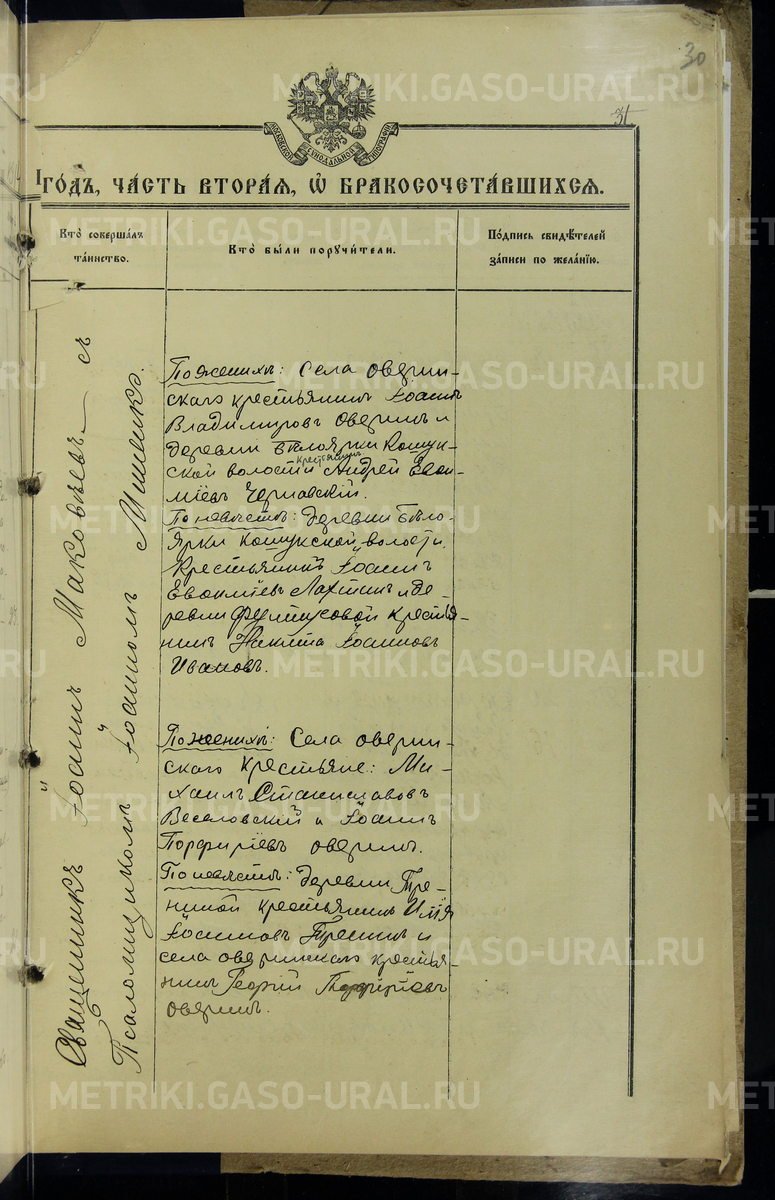 30
31
МОСКОВСКОЙ СѴНОДАЛЬНОЙ ТИПОГРАФІИ
ГОДЪ, ЧАСТЬ ВТОРАЯ, Ѽ БРАКОСОЧЕТАВШИХСЯ.
Кто совершалъ
таинство.
Кто были поручители.
Подпись свидѣтелей
записи по желанію.
Священникъ Іоаннъ Маковѣевъ — съ
Псаломщикомъ Іоанномъ Мишенко.
По женихѣ: Села Оверин-
скаго крестьянинъ Іоаннъ
Владиміровъ Оверинъ и
деревни Бѣлоярки Кошук-
ской волости крестьянинъ Андрей Евѳи-
міевъ Чернавскій.
По невѣстѣ: Деревни Бѣло-
Ярки Кошукской волости,
Крестьянинъ Іоаннъ
Евѳиміевъ Лахтинъ и де-
ревни крестья-
нинъ Никита Іоанновъ
Ивановъ.
По женихѣ: Села Оверин-
скаго Крестьяне: Ми-
хаилъ Станиславовъ
Веселовскій и Іоаннъ
Порфиріевъ Оверинъ.
По невѣстѣ: Деревни Тре-
ниной крестьянинъ Илія
Іоанновъ Тренинъ и
села Оверинскаго крестья-
нинъ Георгій Порфиріевъ
Оверинъ.
METRIKI.GASO-URAL.RU